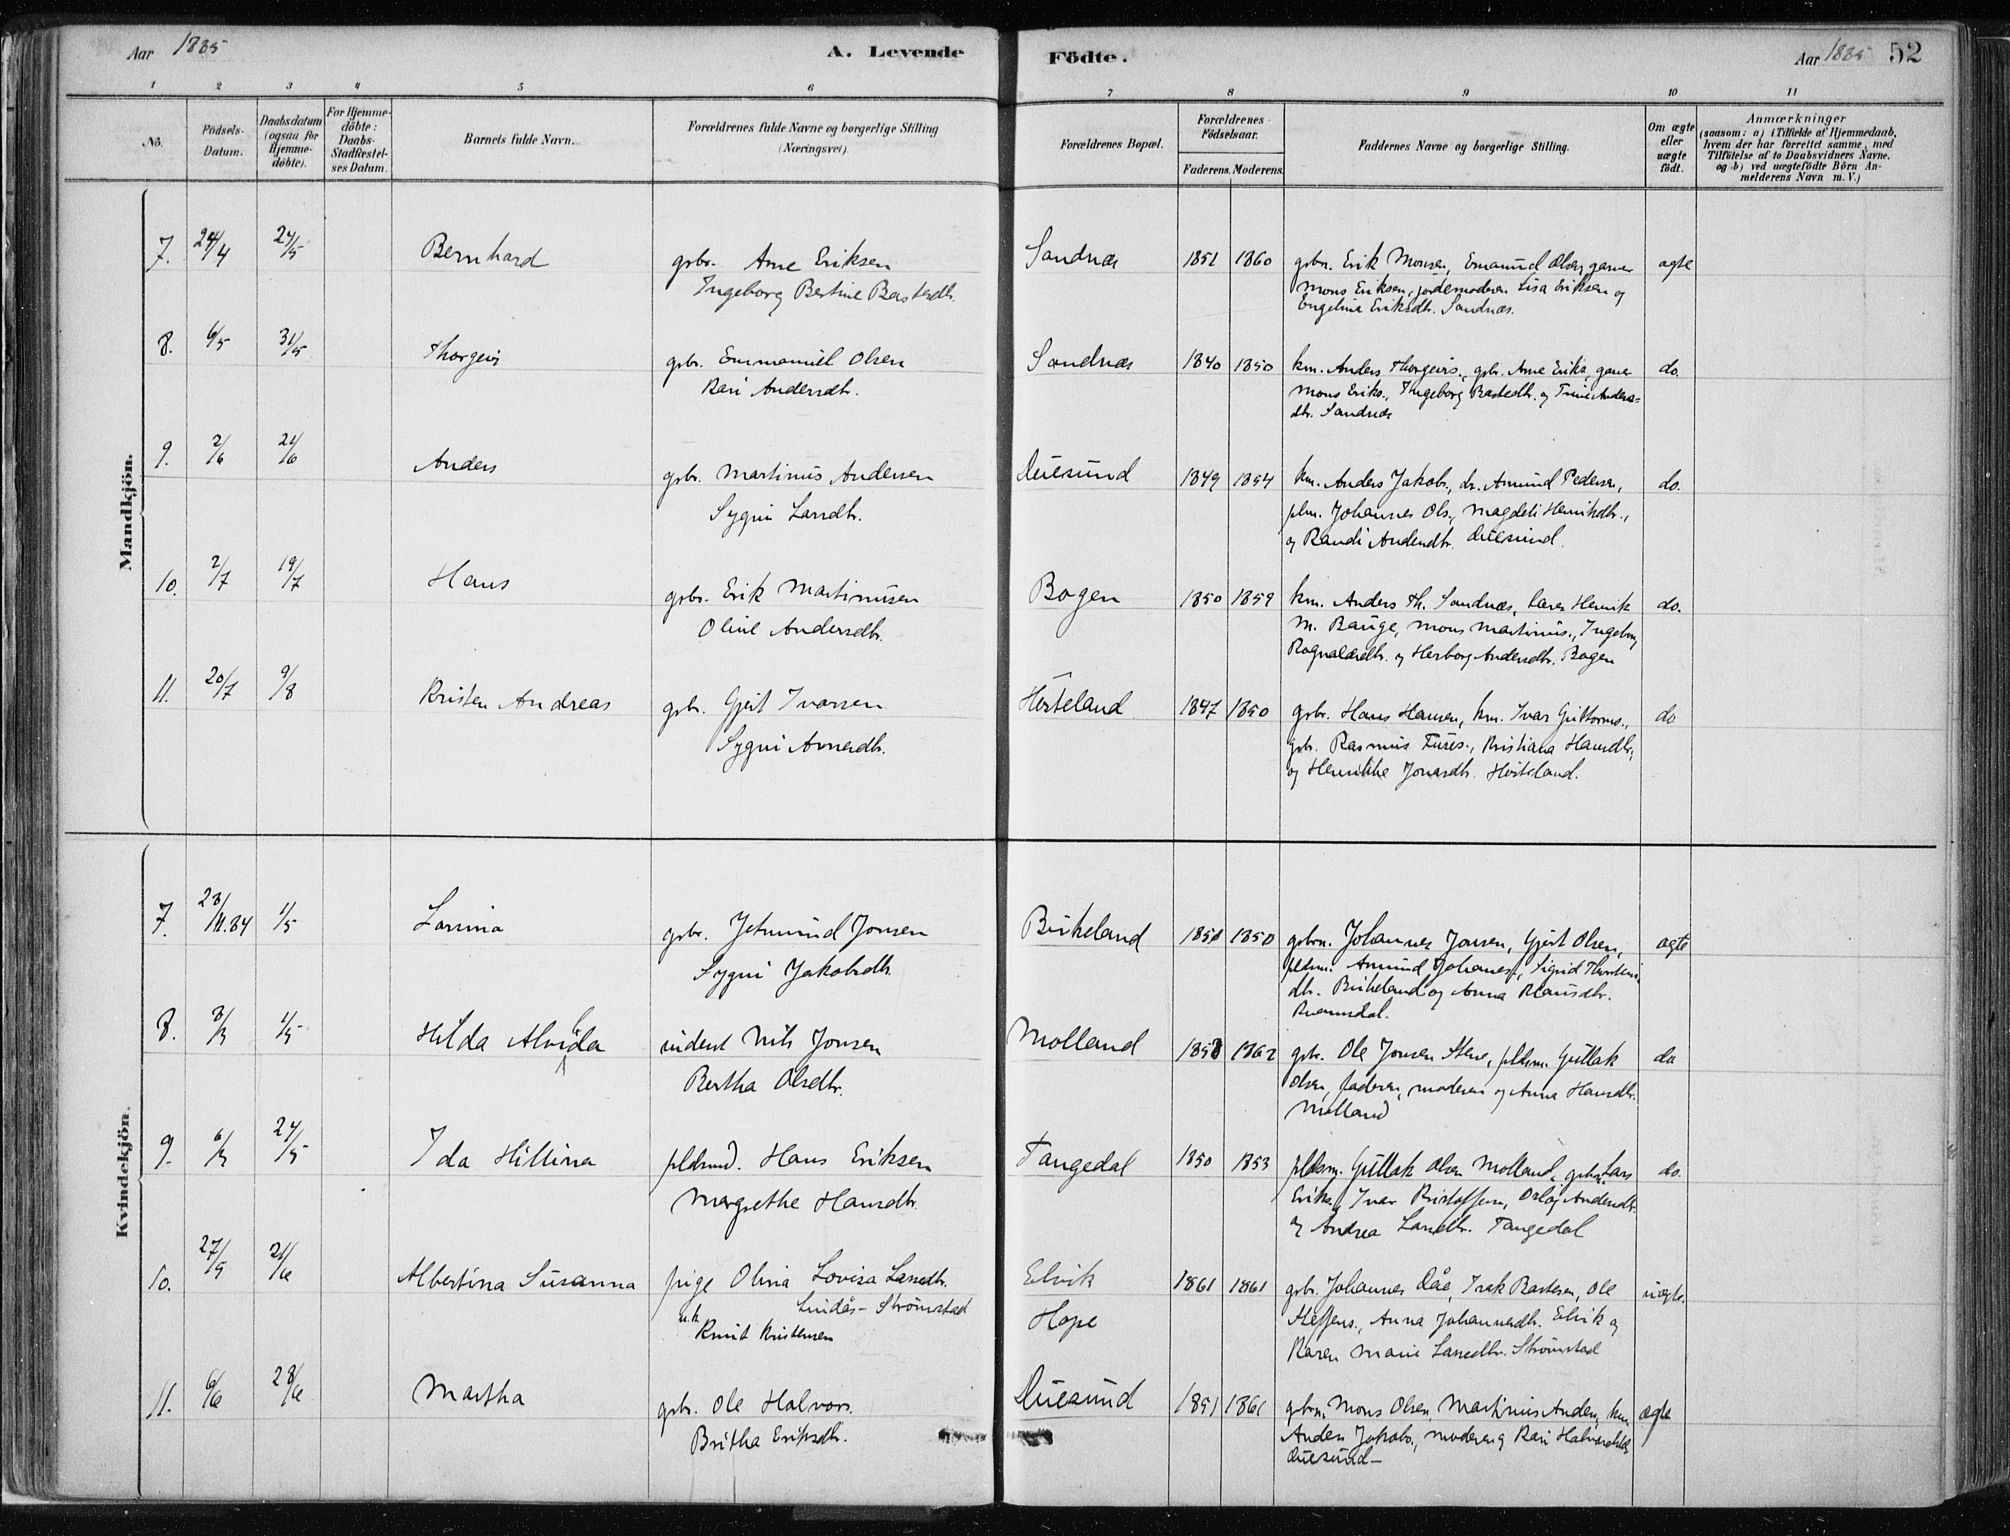 Aar 1885
A. Levende
Födte.
Aar 1885 52
1 2 3 4 5 6 7 8 9 10 11
No.
Födsels-Datum.
Daabsdatum (ogsaa for Hjemmedöbte).
For Hjemmedöbte: Daabs-Stadfæstelses Datum.
Barnets fulde Navn.
Forældrenes fulde Navne og borgerlige Stilling (Næringsvei)
Forældrenes Bopæl.
Forældrenes Födselsaar.
Faderens. Moderens.
Faddernes Navne og borgerlige Stilling.
Om ægte eller uægte födt.
Anmærkninger
(saasom: a) i Tilfælde af Hjemmedaab,
hvem der har forrettet samme, med
Tilföielse af to Daabsvidners Navne,
og b) ved uægtefödte Börn An-
melderens Navn m. V.)
Mandkjön.
7. 24/4 24/5 Bernhard gbr. Arne Eriksen Sandnæs 1851 1860 gbr. Erik Monsen, Emanuel Olsen, garver ægte
Ingeborg Bertine Bastesdtr. Mons Eriksen, jordemoderen Lisa Eriksen og
Engelina Eriksdtr. Sandnæs.
8. 6/5 31/5 Thorgeir gbr. Emmanuel Olsen Sandnæs 1840 1850 km. Anders Thorgeirs., gbr. Arne Eriks., garver do.
Kari Andersdtr. Mons Eriks., Ingeborg Bastesdtr. og Trine Anders=
dtr. Sandnæs
9. 2/6 21/6 Anders gbr. Martinus Andersen Duesund 1849 1854 km. Anders Jakobs., dr. Amund Pedersen, do.
Sygni Larsdtr. plm. Johannes Ols., Magdeli Henriksdtr.,
og Randi Andersdtr. Duesund.
10. 2/7 19/7 Hans gbr. Erik Martinusen Bogen 1850 1859 km. Anders Th. Sandnæs, Lærer Henrik do.
Oline Andersdtr. M. Bauge, Mons Martinus., Ingeborg
Rognaldsdtr. og Herborg Andersdtr. Bogen
11. 20/7 9/8 Kristen Andreas gbr. Gjert Ivarsen Hosteland 1847 1850 gbr. Hans Hansen, km. Ivar Guttorms., do
Sygni Arnesdtr. gbr. Rasmus Fures., Kristiana Hansdtr.,
og Henrikke Jonasdtr. Hosteland.
Kvindekjön.
7. 23/11.84 1/5 Larsina gbr. Jetmund Jonsen Birkeland 1851 1850 gbrn. Johannes Jonsen, Gjert Olsen, ægte
Sygni Jakobsdtr. pldsm. Amund Johanes., Sigrid Thorsteins
dtr. Birkeland og Anna Klausdtr.
8. 3/3 1/5 Hilda Alvilda inderst Nils Jonsen Molland 1858 1862 gbr. Ole Jonsen Stene, pldsm. Gullak do
Bertha Olsdtr. Olsen, faderen, moderen og Anna Hansdtr.
Molland
9. 6/3 24/5 Ida Hillina pldsmd. Hans Eriksen Tangedal 1850 1853 pldsm. Gullak Olsen Molland, gbr. Lars do.
Margrethe Hansdtr. Eriks., Ivar Kristoffersen, Andersdtr.
og Andrea Larsdtr. Tangedal
10. 27/5 21/6 Albertina Susanna pige Olina Lovisa Larsdtr. Elvik 1861 1861 gbr. Johannes Daae, Isak Bastesen, Ole uægte.
Lindås- Strömstad
u.k. Knut Kristensen Hope Steffens., Anna Johannesdtr. Elvik og
Karen Marie Larsdtr. Strömstad
11. 6/6 28/6 Martha gbr. Ole Halvors. Duesund 1851 1861 gbrn. Mons Olsen, Martinus Anders., km. ægte
Britha Eriksdtr. Anders Jakobs., moderen og Kari Halvorsdtr.
Duesund